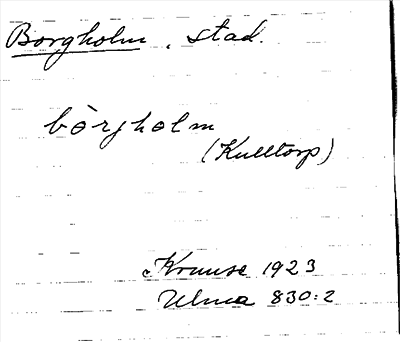 Borgholm, stad.
bòrjholm
(Kulltorp)
Krause 1923
Ulma 830:2